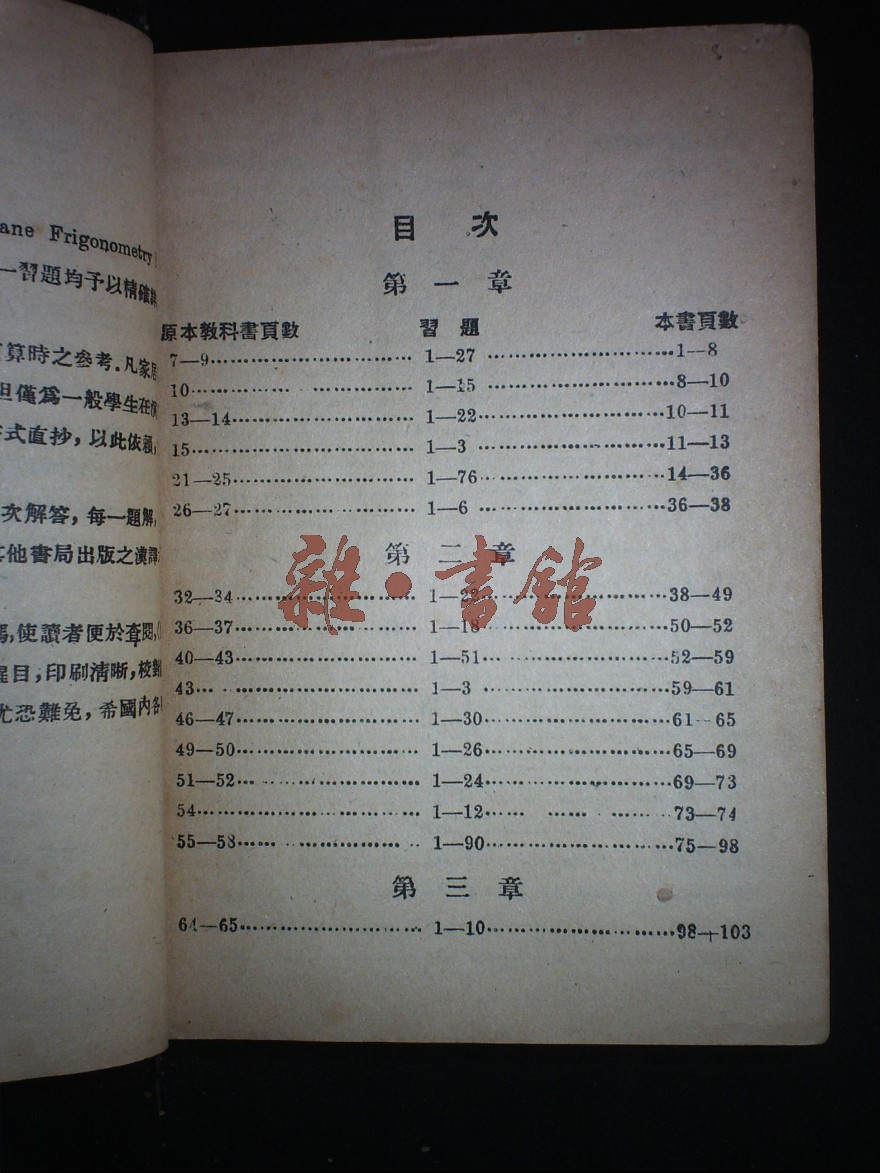 ane Frigonometry
一習題均予以精確
算時之參考.凡家
但僅爲一般學生在
式直抄，以此依賴，
次解答，每一題解，
其他書局出版之漢譯
，使讀者便於查閱，
醒目，印刷清晰，校對
尤恐難免，希國內各
目 次
第 一 章
原本教科書頁數 習 題 本書頁數
7—9 1—27 1—8
10 1—15 8—10
13—14 1—22 10—11
15 1—3 11—13
21—25 1—76 14—36
26—27 1—6 36—38
第 二 章
32—34 1—22 38—49
36—37 1—18 50—52
40—43 1—51 52—59
43 1—3 59—61
46—47 1—30 61—65
49—50 1—26 65—69
51—52 1—24 69—73
54 1—12 73—74
55—58 1—90 75—98
第 三 章
64—65 1—10 98—103
雜·書館